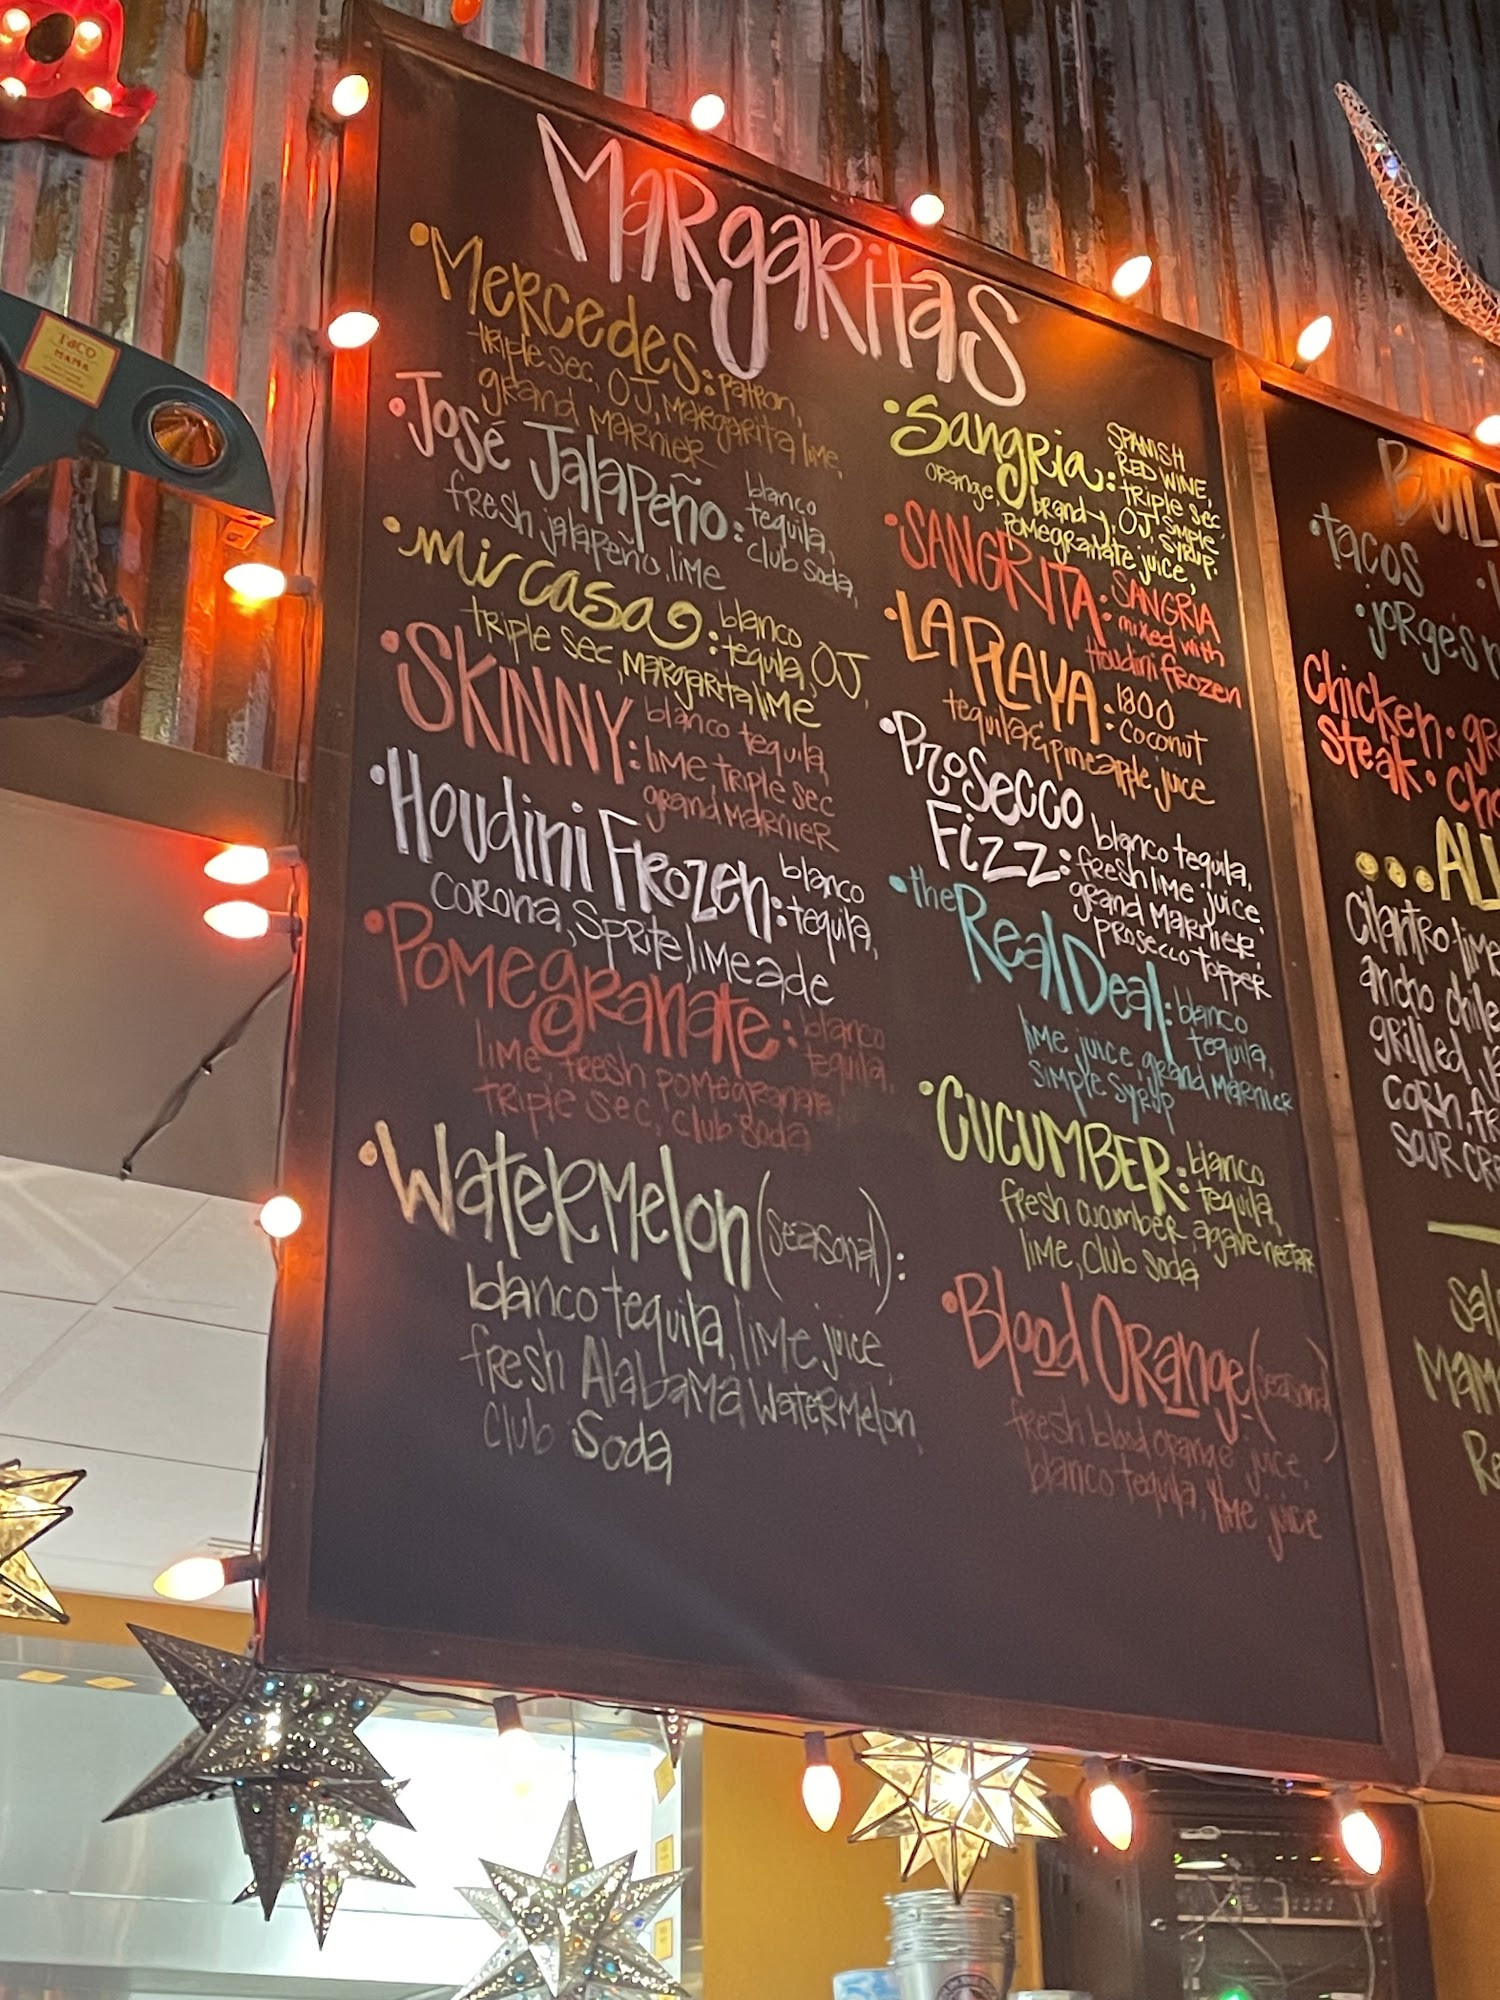 Margaritas
• Mercedes: Patron,
triple sec, OJ, margarita lime,
grand marnier
• José Jalapeño: blanco
tequila,
club soda,
fresh jalapeño, lime
• mi casa: blanco
tequila, OJ,
triple sec, margarita lime
• SKINNY: blanco tequila,
lime triple sec
grand marnier
• Houdini Frozen: blanco
tequila,
corona, Sprite, limeade
• Pomegranate: blanco
tequila,
lime, fresh pomegranate,
triple sec, club soda
• Watermelon (seasonal):
blanco tequila, lime juice,
fresh Alabama watermelon,
club soda
• Sangria: SPANISH
RED WINE,
triple sec,
orange, brandy, OJ, simple
syrup.
pomegranate juice,
• SANGRITA: SANGRIA
mixed with
Houdini frozen
• LA PLAYA: 1800
coconut
tequila & pineapple juice
• Prosecco
Fizz: blanco tequila,
fresh lime juice,
grand marnier
prosecco topper
• the Real Deal: blanco
tequila,
lime juice, grand marnier
simple syrup
• CUCUMBER: blanco
tequila,
fresh cucumber, agave nectar,
lime, club soda
• Blood Orange (seasonal)
fresh blood orange juice,
blanco tequila, lime juice
• tacos
• jorge's
Chicken • 
Steak •
...
Cilantro lime
ancho chile
grilled
corn,
sour
TACO
MAMA